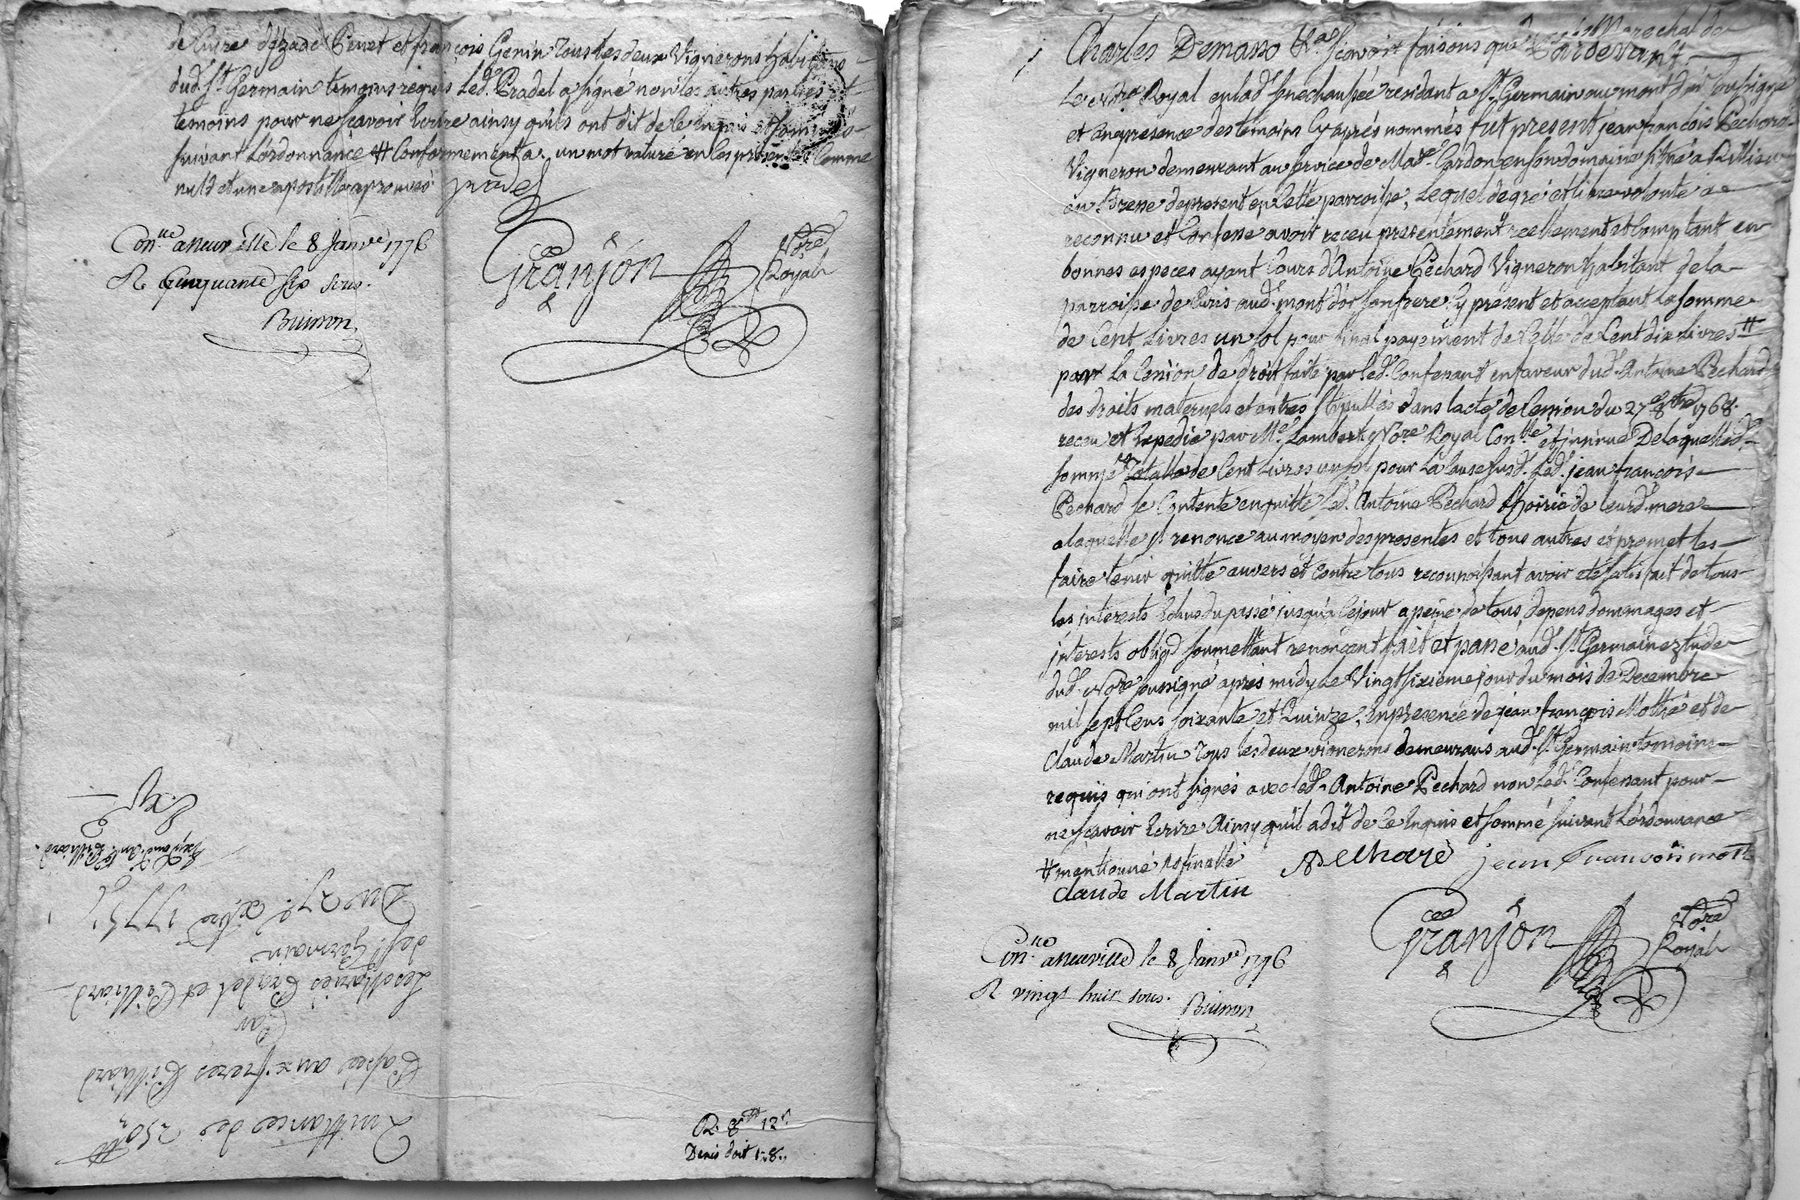 de Curre d'Izade Penet et françois Genin tous les deux Vignerons habitans
dud. St. Germain temoins requis Led. Pradel a signé non les autres parties et
temoins pour ne sçavoir Ecrire ainsy quils ont dit de ce Enquis et sommés
suivant L'ordonnance ## Conformement a. un mot raturé en les presentes Comme
nul et une apostille aprouvés pradel
Con.lle aneuville le 8 Janv.er 1776
R Cinquante six sous.
Buisson
Granjon No.re Royal
Quittance de 250 ₶
Passée aux freres Billiard
Par
Les Mariés Pradel et Billiard
de St. Germain
Du 27e. xbre 1775
Exp.
R. 8 ₶ 12 s
Denis doit 1.8.
Charles Demasso &a. sçavoir faisons que Pardevant
Le No.re Royal en lad. senechaussée residant a St. Germain au mont d'or soussigné
et en presence des temoins cy après nommés fut present jean francois Pechard
Vigneron demeurant au service de Mad.e Cardon en son domaine situé a Rillieu
en Bresse de present en Cette parroisse, Lequel de gré et libre volonté a
reconnu et Confessé avoir reçeu presentement reellement et Comptant en
bonnes especes ayant Cours d'Antoine Pechard Vigneron habitant de la
parroisse de Curis aud. mont d'or son frere icy present et acceptant La somme
de Cent Livres un sol pour final payement de Celle de Cent dix Livres ##
pour La Cession de droit faite par led. Confessant en faveur dud. Antoine Pechard
des droits maternels et autres stipullés dans l'acte de Cession du 27 8bre 1768
receu et Expedié par Me. Lambert No.re Royal Con.llé et insinué De laquelle d.
somme totalle de Cent Livres un sol pour La Cause susd. Led. jean francois
Pechard se Contente en quitte Led. Antoine Pechard L'hoirie de leurd. mere
a laquelle il renonce au moyen des presentes et tous autres et promet les
faire tenir quitte envers et Contre tous reconnoissant avoir eté satisfait de tous
les interests Echus du passé jusqu'a Ce jour a peine de tous depens dommages et
interests oblig.d soumettant renonçent fait et passé aud. St. Germain etude
dud. No.re soussigné après midy Le Vingt sixieme jour du mois de Decembre
mil sept Cens soixante et Quinze. En presence de jean françois Motte et de
Claude Martin tous les deux vignerons demeurans aud. St. Germain temoins
requis qui ont signés avec led. Antoine Pechard non Led. Confessant pour
ne sçavoir Ecrire Ainsy qu'il a dit de Ce Enquis et sommé suivant L'ordonnance
## mentionné
A Pechard jean francois motte
Claude Martin
Granjon No.re Royal
Con.lle aneuville le 8 Janv.er 1776
R vingt huit sous.
Buisson